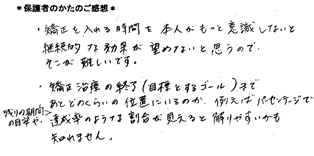 ＊保護者のかたのご感想＊
・矯正を入れる時間を本人がもっと意識しないと
継続的な効果が望めないと思うので
そこが難しいです。
・矯正治療の終了(目標とするゴール)まで
あとどのくらいの位置にいるのか、例えばパーセンテージで
残りの期間の目安や、
達成率のような割合が見えると解りやすいかも
知れません。